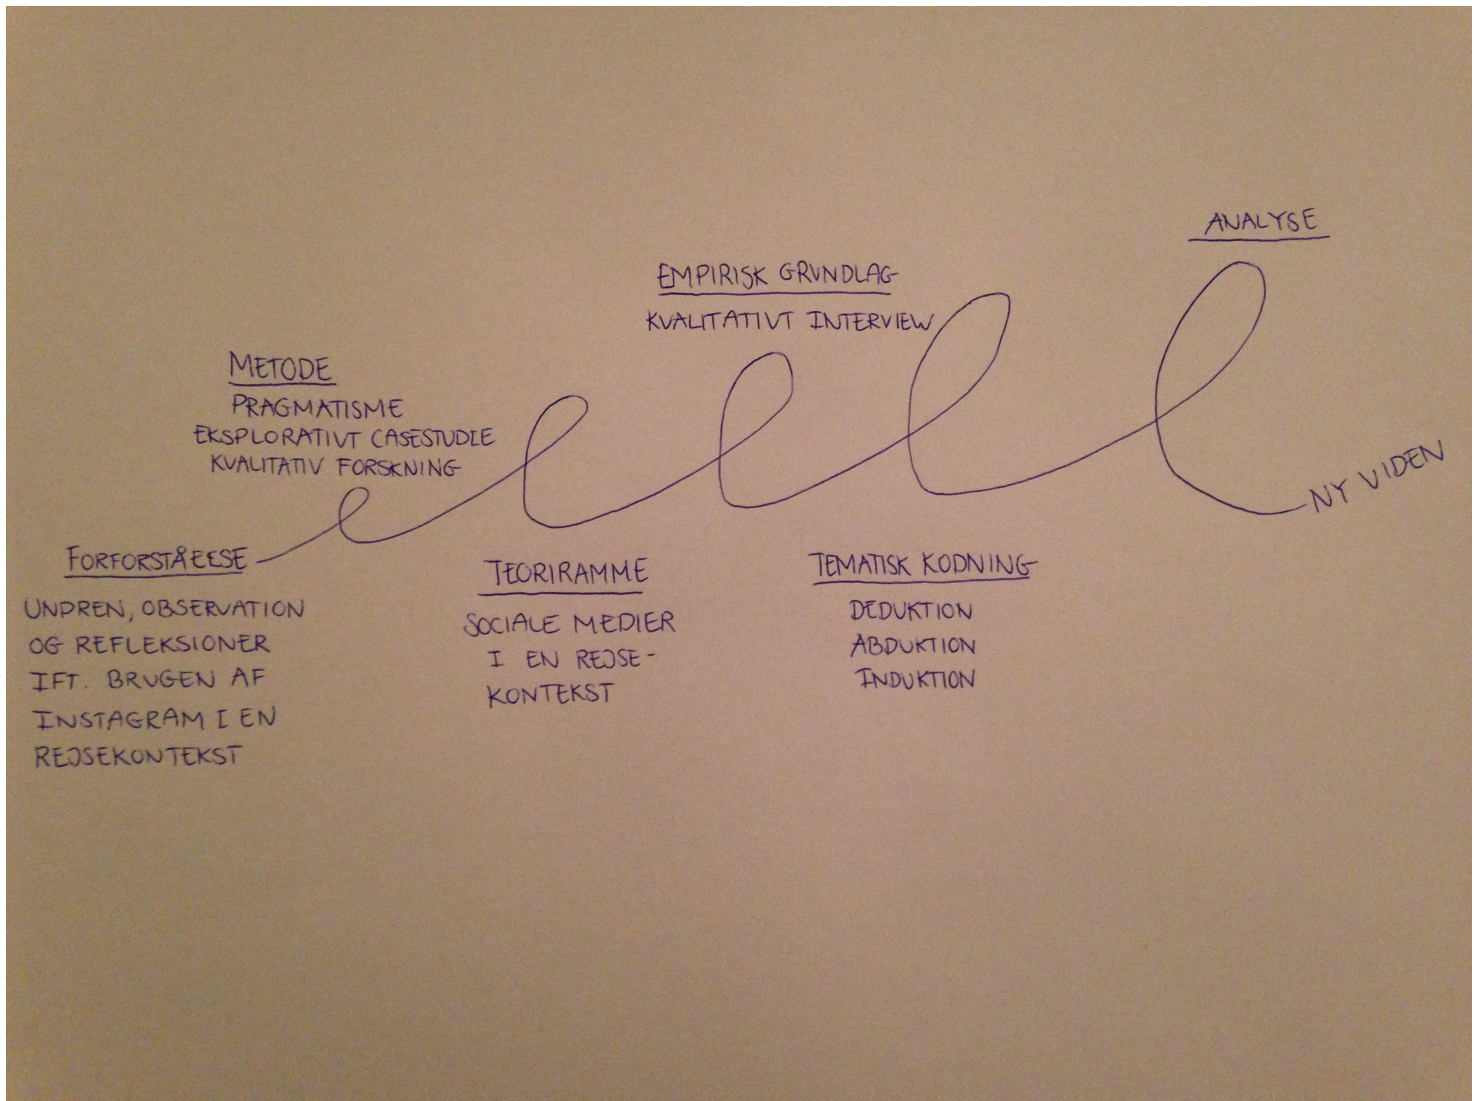 FORFORSTÅELSE
UNDREN, OBSERVATION
OG REFLEKSIONER
IFT. BRUGEN AF
INSTAGRAM I EN
REJSEKONTEKST
METODE
PRAGMATISME
EKSPLORATIVT CASESTUDIE
KVALITATIV FORSKNING
TEORIRAMME
SOCIALE MEDIER
I EN REJSE-
KONTEKST
EMPIRISK GRUNDLAG
KVALITATIVT INTERVIEW
TEMATISK KODNING
DEDUKTION
ABDUKTION
INDUKTION
ANALYSE
NY VIDEN